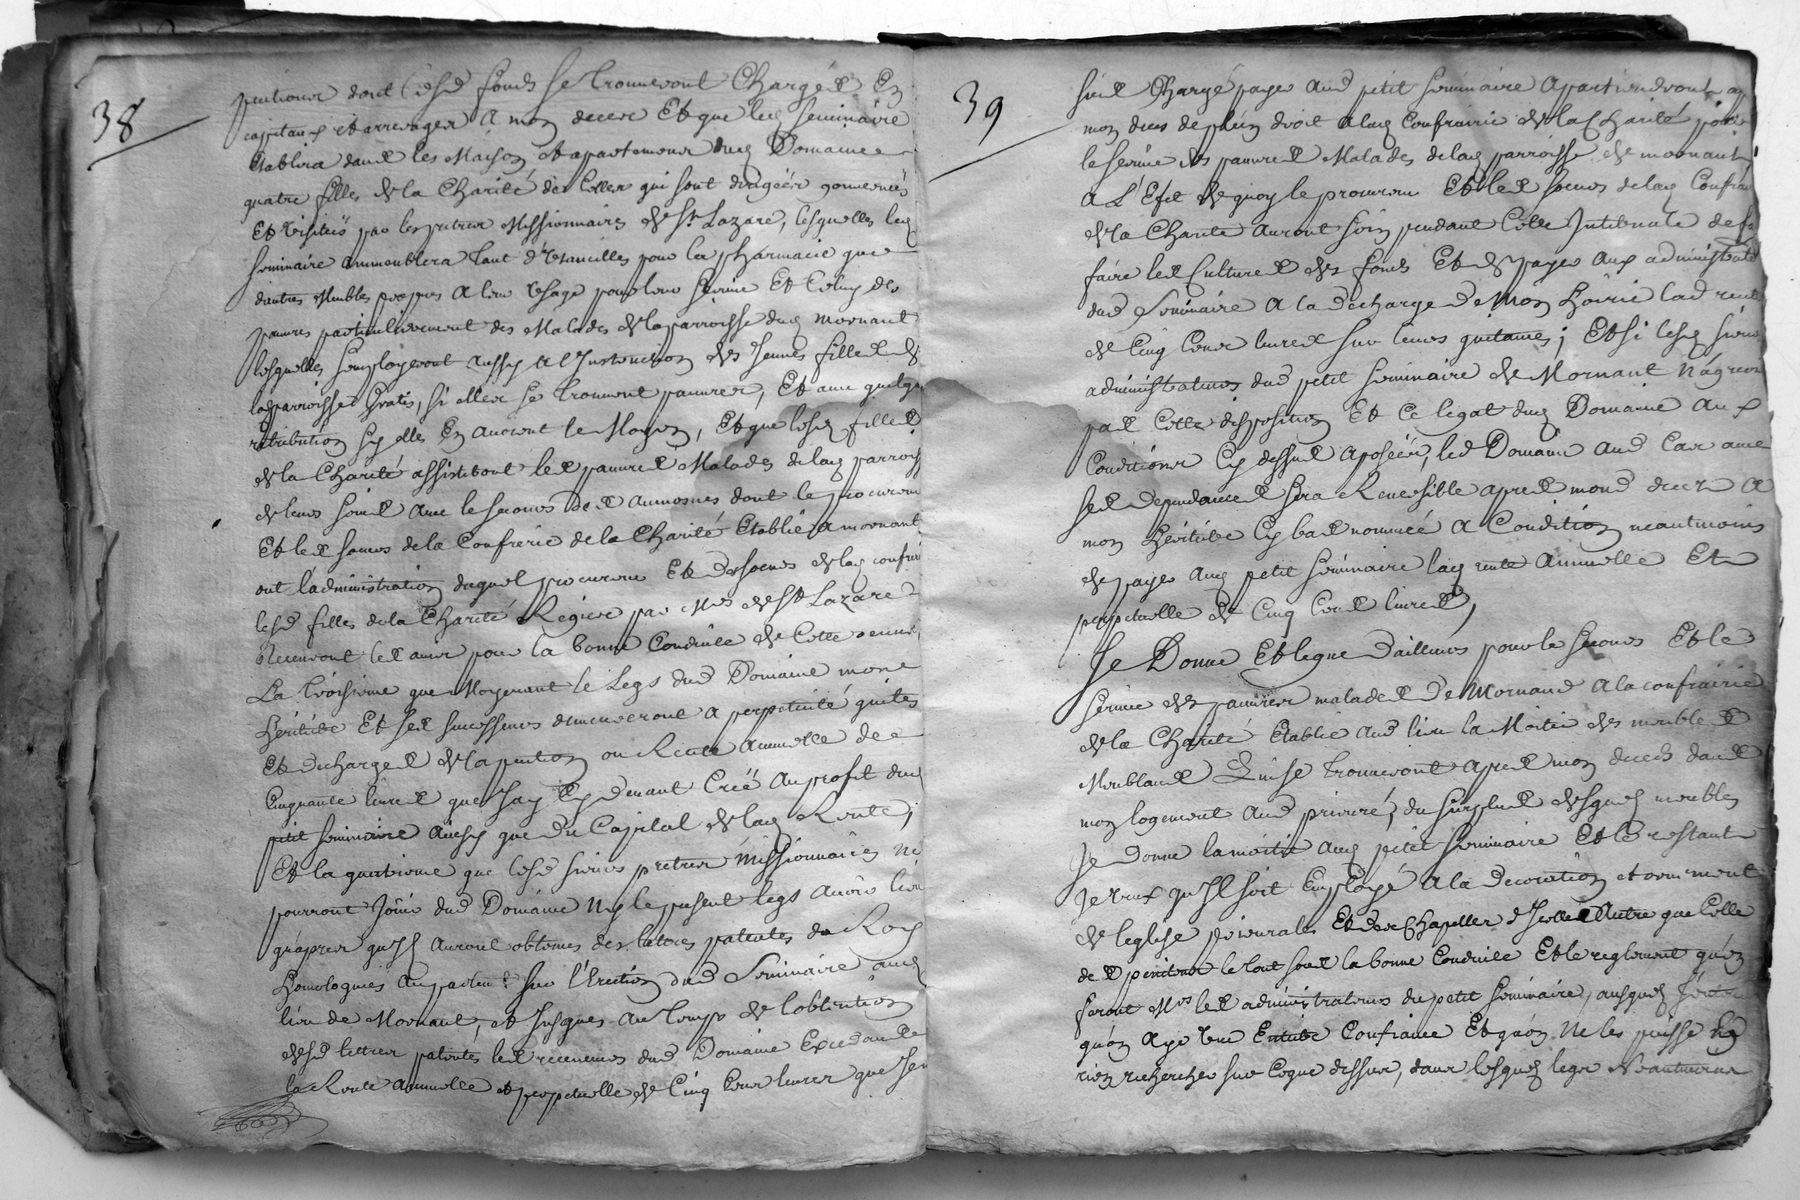 38
pentions dont lesd fonds se trouveront Chargés En
capitaux et arrerages A mon deces Et que led Seminaire
Etablira dans les Maison et apartemens dud Domaine
quatre filles de la Charité des Celles qui sont dirigées gouvernées
Et visitées par les pretres Missionnaires de St Lazare, lesquelles led
Seminaire ammeublera tant d'Utancilles pour la pharmacie que
d'autres Meubles propres A leur Usage pour leur Service Et Celuy des
pauvres particulierement des Malades de la parroisse dud mornant
lesquelles semployeront aussy a l'Instruction des Jeunes filles de
lad parroisse Gratis, si elles se trouvent pauvres, Et avec quelque
retribution sy elles En auront le Moyen, Et que lesd filles
de la Charité assisteront les pauvres Malades de lad parroisse
de leurs soins avec le secours des aumosnes dont le procureur
Et les sœurs de la Confrerie de la Charité Etablie a mornant
ont l'administration duquel procureur Et des sœurs de lad confrerie
lesd filles de la Charité Regies par Mrs de St Lazare
Recevront les avis pour la bonne Conduite de Cette œuvre
La troisieme que Moyenant le Legs dud Domaine mon
Heritier Et ses successeurs demeureront a perpetuité quites
Et decharges de la pention ou Rente Annuelle de
Cinquante livres que J'ay Cy devant Créé Au profit dud
petit Seminaire Ainsy que du Capital de lad Rente;
Et la quatrieme que lesd sieurs pretres missionnaires ne
pourront Jouir dud Domaine Ny le present legs avoir lieu
qu'apres qu'Ils Auront obtenus des lettres patentes du Roy
Homologuées Au parlemt sur l'Erection dud Seminaire aud
lieu de Mornant, et Jusques au temps de l'obtention
desd lettres patentes les revenus dud Domaine Excedants
la Rente Annuelle et perpetuelle de Cinq Cens livres que J'en
39
sieu Chargé payer aud petit Seminaire Apartiendront ap
mon deces de plein droit A lad Confrairie de la Charité pour
le service des pauvres Malades de lad parroisse de mornant
A L'Efet de quoy le procureur Et les sœurs de lad Confrai
de la Charité Auront soin pendant Cette Intervale de
faire les Cultures des fonds Et de payer Aux administrate
dud Seminaire A la decharge de Mon Hoirie lad rente
de Cinq Cens livres sur leurs quitances; Et si lesd sieurs
administrateurs dud petit Seminaire de Mornant N'agreen
pas Cette disposition Et Ce legat dud Domaine Aux
Conditions Cy dessus aposées, led Domaine aud Cas avec
ses dependances sera Reversible apres mond deces A
mon Heritier Cy bas nommé A Condition neantmoins
de payer Aud petit Seminaire lad rente Annuelle Et
perpetuelle de Cinq Cens livres,
Je Donne Et legue d'ailleurs pour le secours Et le
service des pauvres malades de Mornand A la confrairie
de la Charité Etablie Aud lieu la Moitié des meubles
Meublants Qui se trouveront apres mon deces dans
mon logement Aud prieuré, du surplus desquels meubles
Je donne la moitié aud petit Seminaire Et le restant
Je veux qu'Il soit Employé A la decoration et ornement
de leglise prieurale Et des Chapelles d'Icelle Autre que Celle
de penitens le tout sous la bonne Conduite Et le reglement qu'en
feront Mrs les administrateurs du petit Seminaire, ausquels J'entens
qu'on Aye Une Entiere Confiance Et qu'on Ne les puisse En
rien rechercher sur Ceque dessus, dans lesquels legs Neantmoins